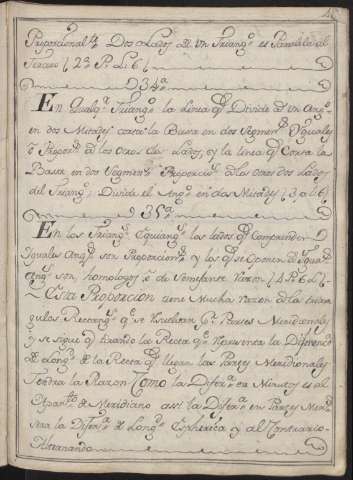 Proporcional.te Dos Lados de Un Triang.o es Paralela al
Tercero (2ª P. L. 6)
34ª
En Qualq.r Triang.o la Linea q.e Divide Un Ang.o
en dos Mitades corta la Bassa en dos Segment.s
o Propor.s a los Otros dos Lados, y la linea q.e Corta la
Bassa en dos Segment.s Proporcio.s a los Otros dos Lados
del Triang.o Divide el Ang.o en dos Mitades (3 a L 6)
35ª
En los Triang.s Equiang.s los lados q.e Comprenden
Iguales Ang.s son Proporcion.s y los q.e se Oponen a
Ang.s son homologos o de Semejante Razon (4 P. 6 L)
Esta Proporcion tiene Mucha Razon a los trian
gulos Rectang.s q.e se Resuelven p.r Partes Meridionales
y se sigue q.e tirando la Recta q.e Representa la Diferencia
de Long.d de la Recta q.e llegan las Partes Meridionales
Tendra la Razon Como la Difer.a en Minutos es al
Apart.to de Meridiano assi la Difer.a en Partes
sera la Difer.a de Long.d Espherica y al Contrario
Alternando